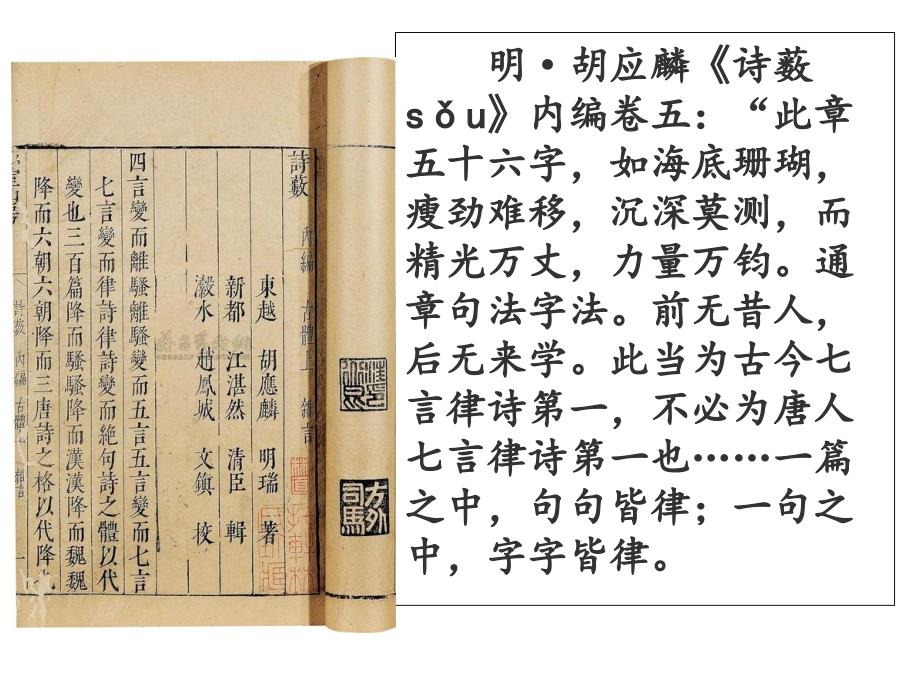 明·胡应麟《诗薮
sǒu》内编卷五：“此章
五十六字，如海底珊瑚，
瘦劲难移，沉深莫测，而
精光万丈，力量万钧。通
章句法字法。前无昔人，
后无来学。此当为古今七
言律诗第一，不必为唐人
七言律诗第一也……一篇
之中，句句皆律；一句之
中，字字皆律。
詩藪 內編 古體上 雜言
東越 胡應麟 明瑞 著
新都 江湛然 清臣 輯
瀫水 趙鳳城 文鎮 校
四言變而離騷離騷變而五言五言變而七言
七言變而律詩律詩變而絶句詩之體以代
變也三百篇降而騷騷降而漢漢降而魏魏
降而六朝六朝降而三唐詩之格以代降也
詩藪 內編 古體 雜言 一
方外
司馬